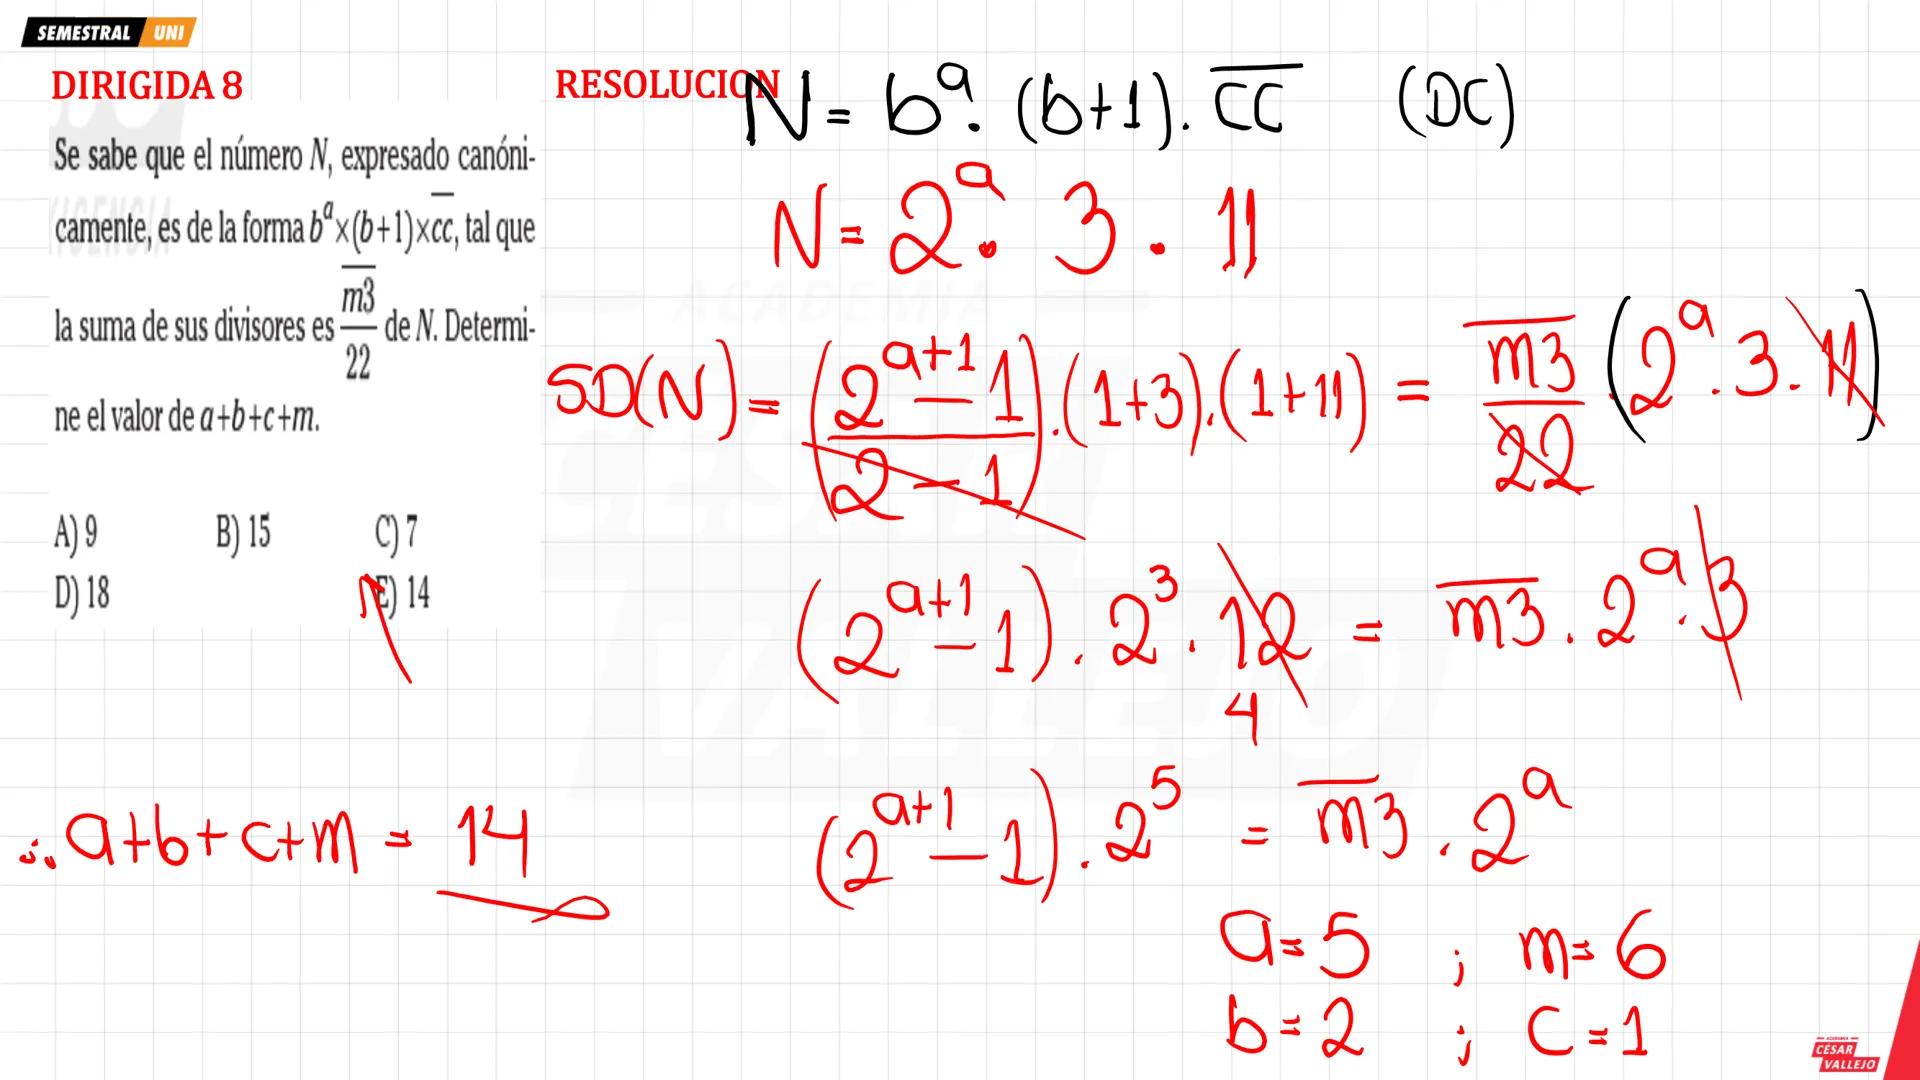 SEMESTRAL UNI
DIRIGIDA 8
Se sabe que el número N, expresado canóni-
camente, es de la forma b^a×(b+1)×c̅c̅, tal que
la suma de sus divisores es m̅3̅/22 de N. Determi-
ne el valor de a+b+c+m.
A) 9 B) 15 C) 7
D) 18 E) 14
∴ a+b+c+m = 14
RESOLUCION
N = b^a . (b+1) . c̅c̅ (DC)
N = 2^a . 3 . 11
ACADEMIA
CÉSAR
VALLEJO
SD(N) = ((2^(a+1) − 1)/(2 − 1)) . (1+3) . (1+11) = m̅3̅/22 (2^a . 3 . 11)
(2^(a+1) − 1) . 2^3 . 12 = m̅3̅ . 2^a . 3
4
(2^(a+1) − 1) . 2^5 = m̅3̅ . 2^a
a = 5 ; m = 6
b = 2 ; c = 1
ACADEMIA
CÉSAR
VALLEJO